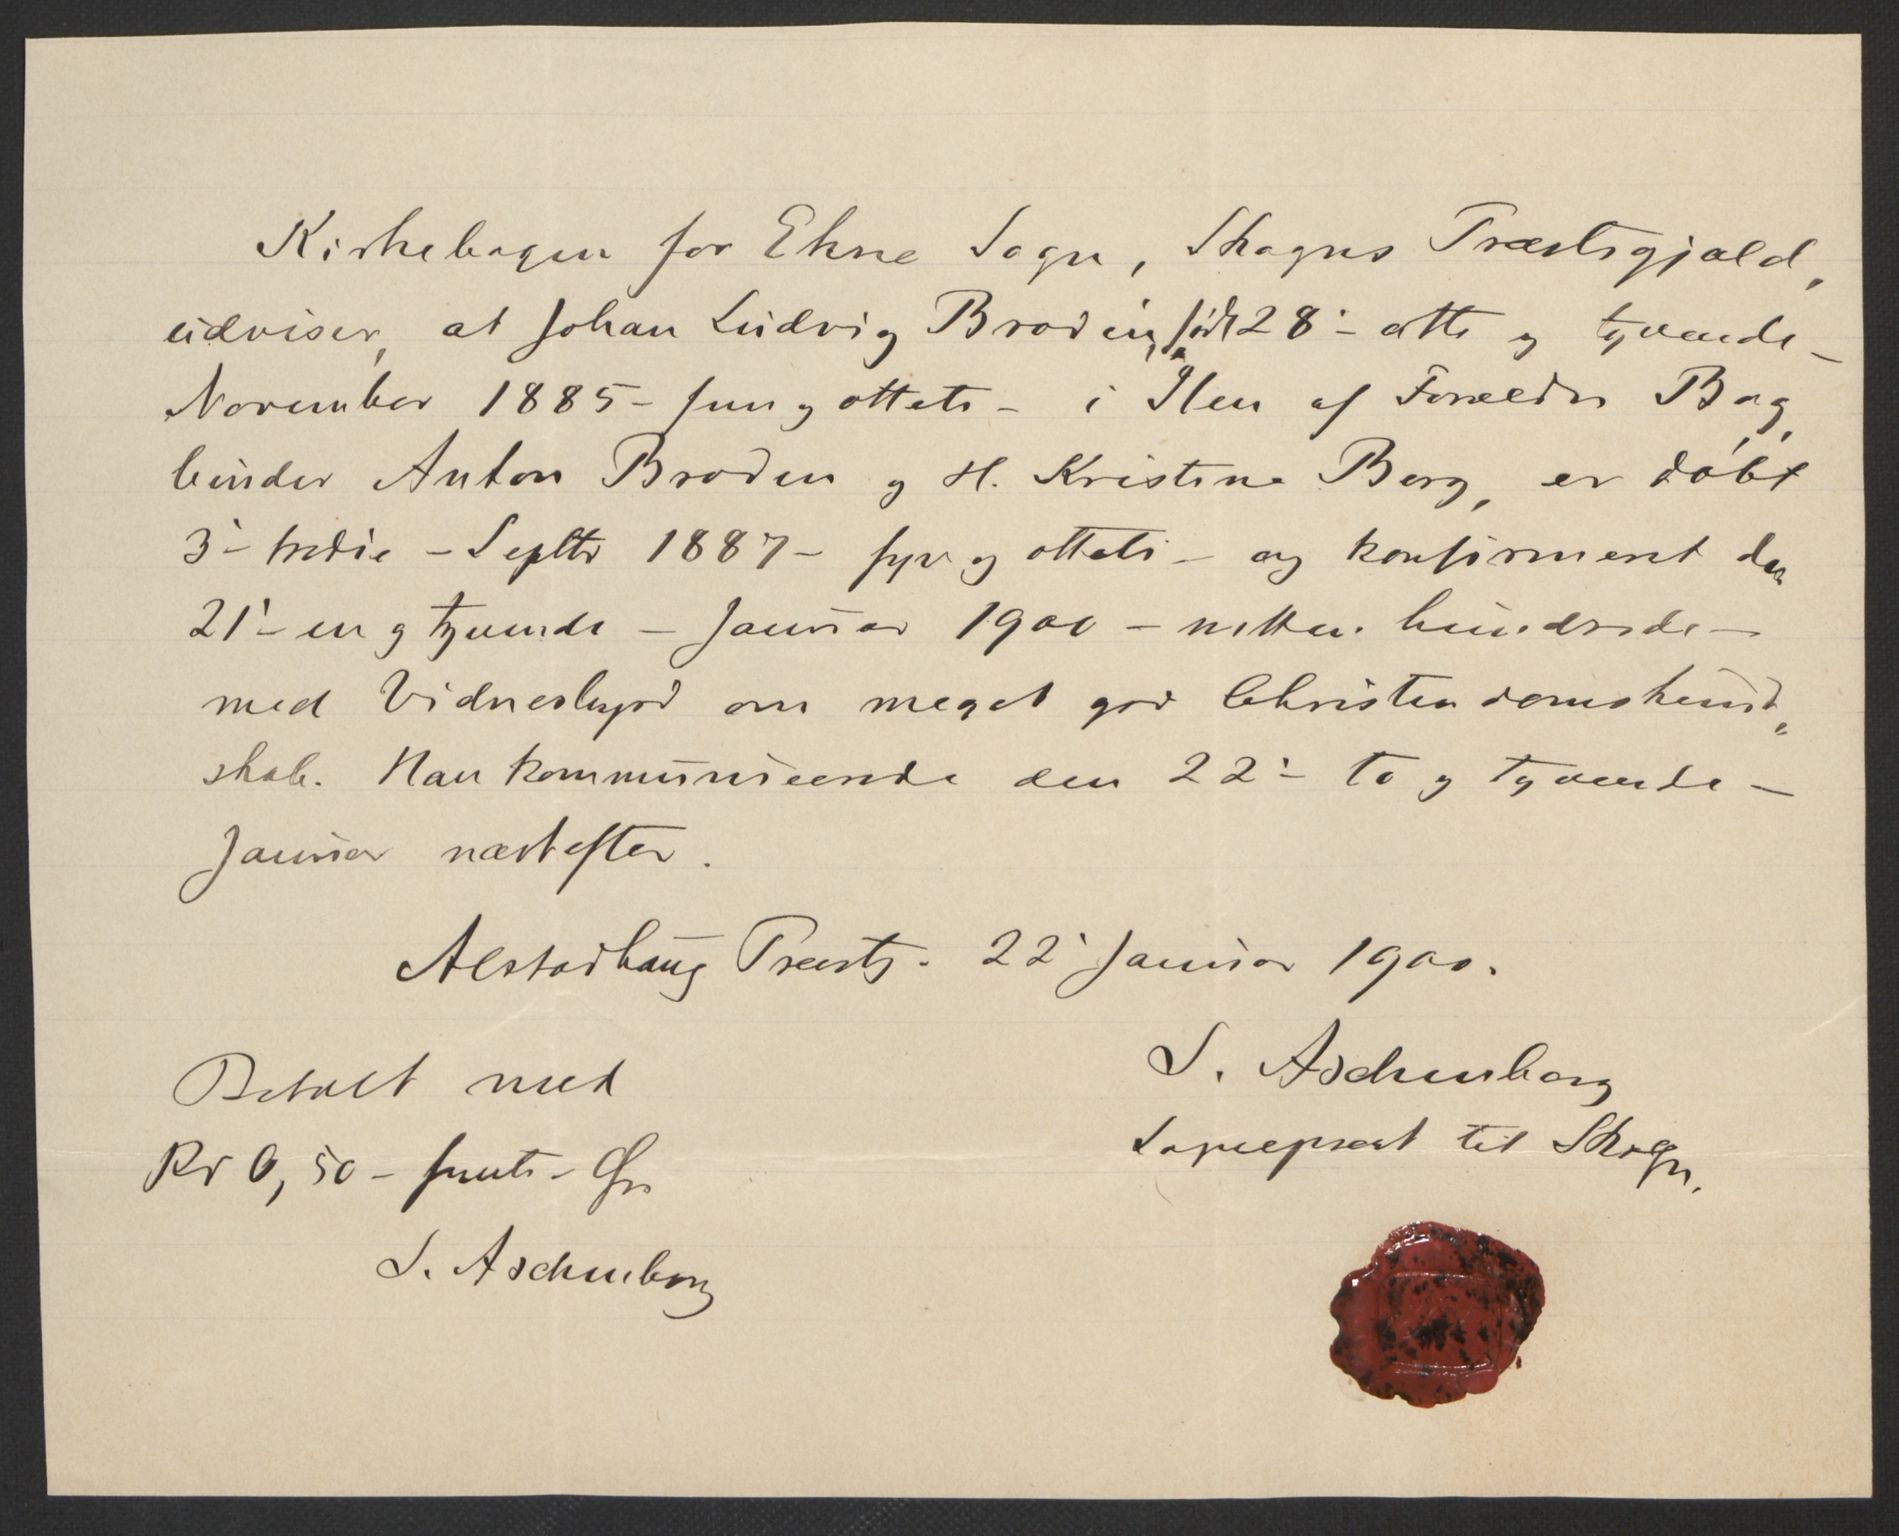 Kirkebogen for Ekne Sogn, Skogns Præstegjæld,
udviser, at Johan Ludvig Brodin, født 28'- otte og tyvende -
November 1885 - fem og otteti - i Ilen af Forældre Bog,,
binder Anton Broden og H. Kristine Berg, er døbt
3'- tredie - Septbr 1887 - syv og otteti - og konfirmeret den
21'- en og tyvende - Januar 1900 - nitten hundrede -
med Vidnesbyrd om meget god Christendomskund,,
skab. Han kommunicerede den 22'- to og tyvende -
Januar næstefter.
Alstadhaug Præstg. 22' Januar 1900.
Betalt med
Kr 0,50 - femti - Øre
S. Aschenberg
S. Aschenberg
Sognepræst til Skogn.